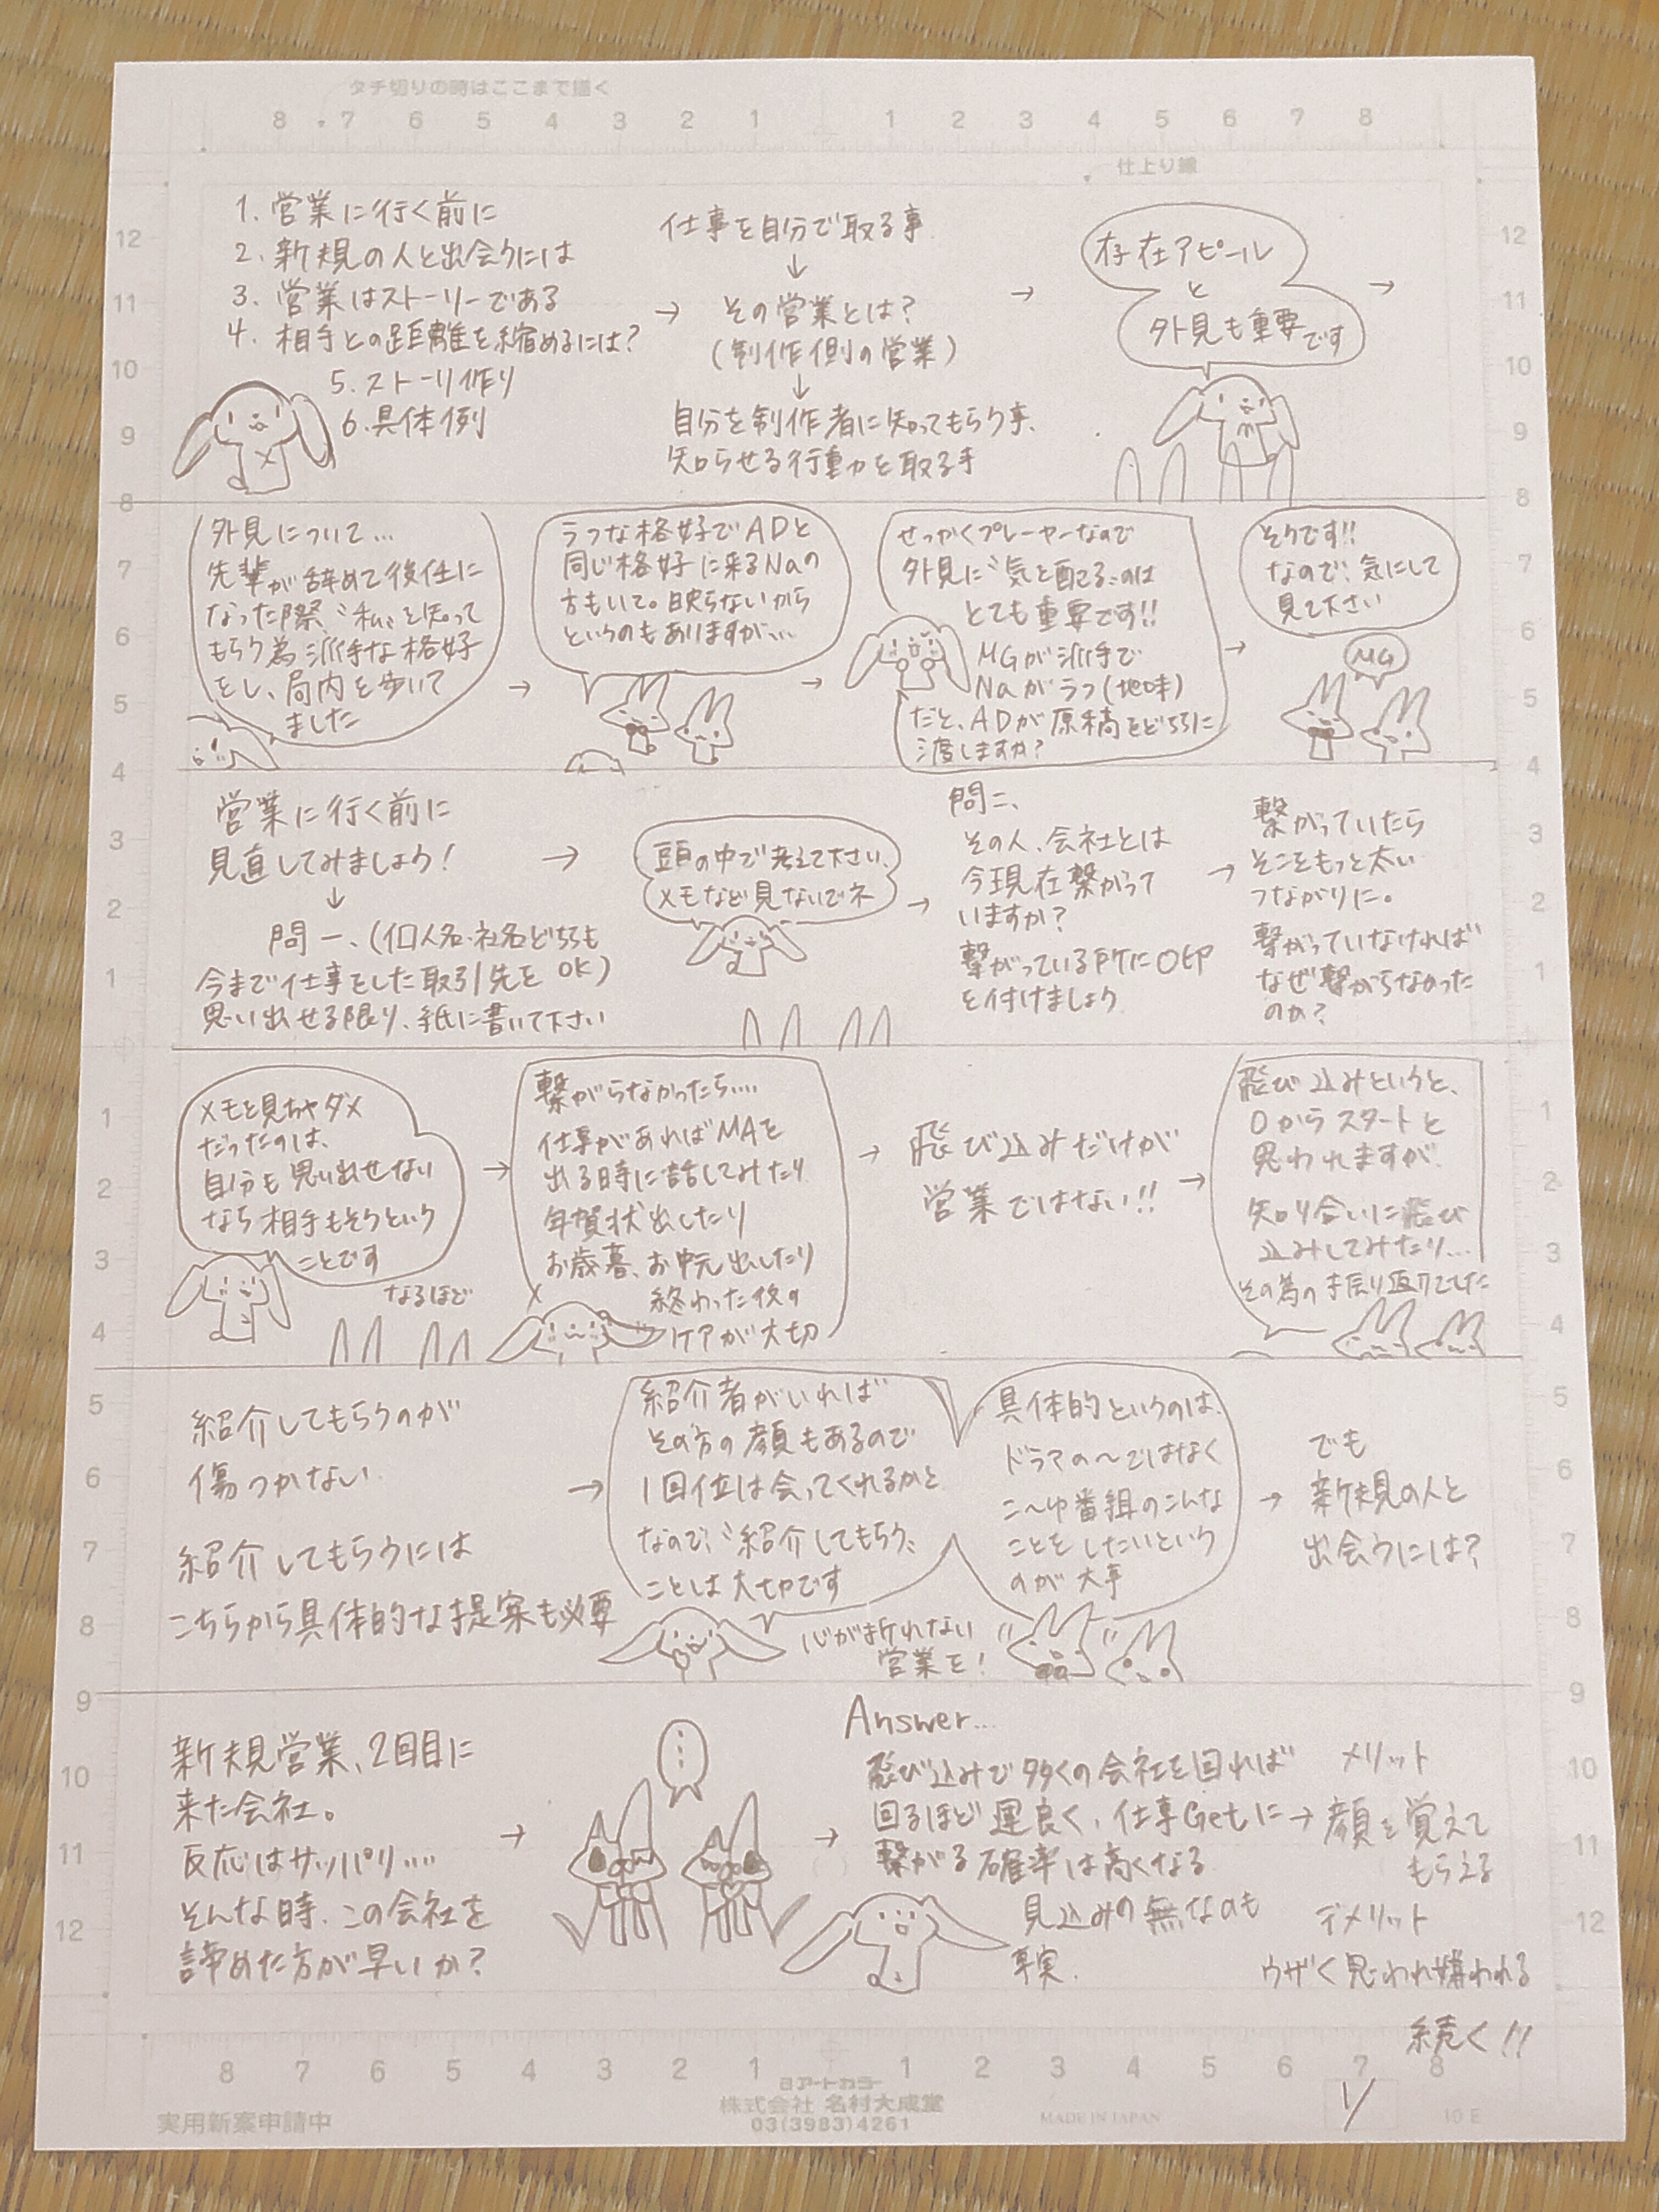 タチ切りの時はここまで描く
8 7 6 5 4 3 2 1 1 2 3 4 5 6 7 8
仕上り線
1. 営業に行く前に
2. 新規の人と出会うには
3. 営業はストーリーである
4. 相手との距離を縮めるには?
5. ストーリ作り
6. 具体例
→
仕事を自分で取る事
↓
その営業とは?
(制作側の営業)
↓
自分を制作者に知ってもらう事、
知らせる行動力を取る事
→
存在アピール
と
外見も重要です
→
外見について…
先輩が辞めて後任に
なった際、〝私〟を知って
もらう為派手な格好
をし、局内を歩いて
ました
→
ラフな格好でADと
同じ格好に来るNaの
方もいて。映らないから
というのもありますが…
→
せっかくプレーヤーなので
外見に〝気を配る〟のは
とても重要です!!
MGが派手で
Naがラフ(地味)
だと、ADが原稿をどちらに
渡しますか?
→
そうです!!
なので、気にして
見て下さい
MG
営業に行く前に
見直してみましょう!
↓
問一、(個人名・社名どちらも
OK)
今まで仕事をした取引先を
思い出せる限り、紙に書いて下さい
→
頭の中で考えて下さい、
メモなど見ないでネ
→
問二、
その人、会社とは
今現在繋がって
いますか?
繋がっている所に○印
を付けましょう
→
繋がっていたら
そこをもっと太い
つながりに。
繋がっていなければ
なぜ繋がらなかった
のか?
メモを見ちゃダメ
だったのは、
自分も思い出せない
なら相手もそうという
ことです
なるほど
→
繋がらなかったら….
仕事があればMAを
出る時に話してみたり
年賀状出したり
お歳暮、お中元出したり
終わった後の
ケアが大切
→
飛び込みだけが
営業ではない!!
→
飛び込みというと、
0からスタートと
思われますが、
知り合いに飛び
込みしてみたり…
その為の振り返りでした
紹介してもらうのが
傷つかない
紹介してもらうには
こちらから具体的な提案も必要
→
紹介者がいれば
その方の顔もあるので
1回位は会ってくれるかと
なので、〝紹介してもらう〟
ことは大切です
心が折れない
営業を!
具体的というのは、
ドラマの〜ではなく
こ〜ゆ番組のこんな
ことをしたいという
のが大事
→
でも
新規の人と
出会うには?
新規営業、2回目に
来た会社。
反応はサッパリ….
そんな時、この会社を
諦めた方が早いか?
→
…
→
Answer…
飛び込みで多くの会社を回れば
回るほど運良く、仕事Getに
繋がる確率は高くなる
見込みの無なのも
事実.
→
メリット
顔を覚えて
もらえる
デメリット
ウザく思われ嫌われる
続く!!
8 7 6 5 4 3 2 1 1 2 3 4 5 6 7 8
アートカラー
株式会社 名村大成堂
03(3983)4261
実用新案申請中
MADE IN JAPAN
1/